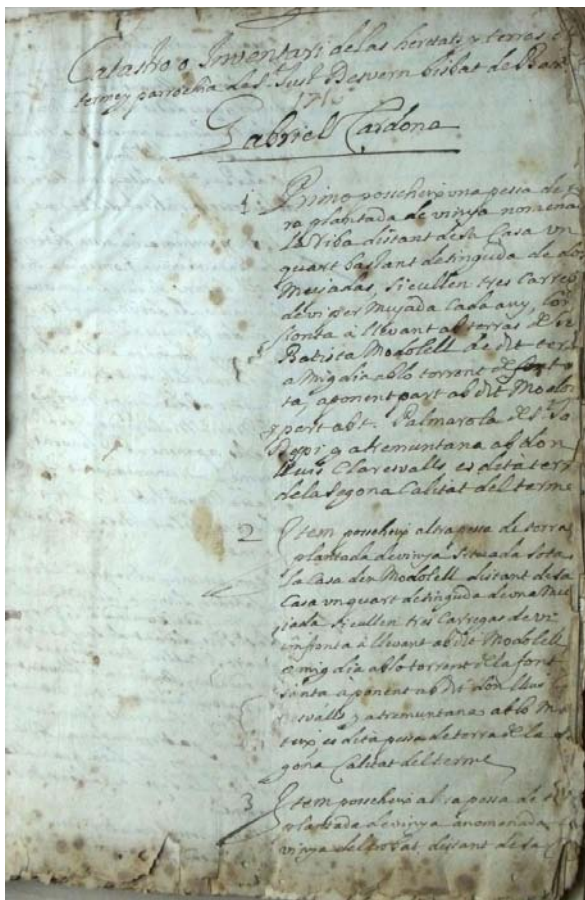 Catastro o Inventari de las heretats y terras
terme y parrochia de St. Just Desvern bisbat de Bar
171
Gabriel Cardona
1 Primo posseheix una pessa de
ra plantada de vinya nomena
la Riba distant de sa Casa un
quart bastant de tinguda de dos
Mujadas, sicullen tres Carre
de vi per Mujada Cada any,
fronta à llevant ab terras de
Batista Modolell
a Mig dia ab lo torrent
ta, a ponent part ab dit Modo
y part ab t. Palmarola
y a tremuntana ab don
lluis Claresvalls es dita terr
de la segona Calitat del terme
2 Item posseheix altra pessa de terra
plantada de vinya situada sota
la Casa den Modolell distant de sa
Casa un quart de tinguda de una Mu
jada sicullen tres Carregas de vi
afronta à llevant ab dit Modolell
a mig dia ab lo torrent de la font
santa à ponent ab dit don lluis
resvalls y a tremuntana ab lo Ma
teix es dita pessa de terra de la se
gona Calitat del terme
3 Item posseheix altra pessa de
plantada de vinya anomenada
vinya del distant de sa